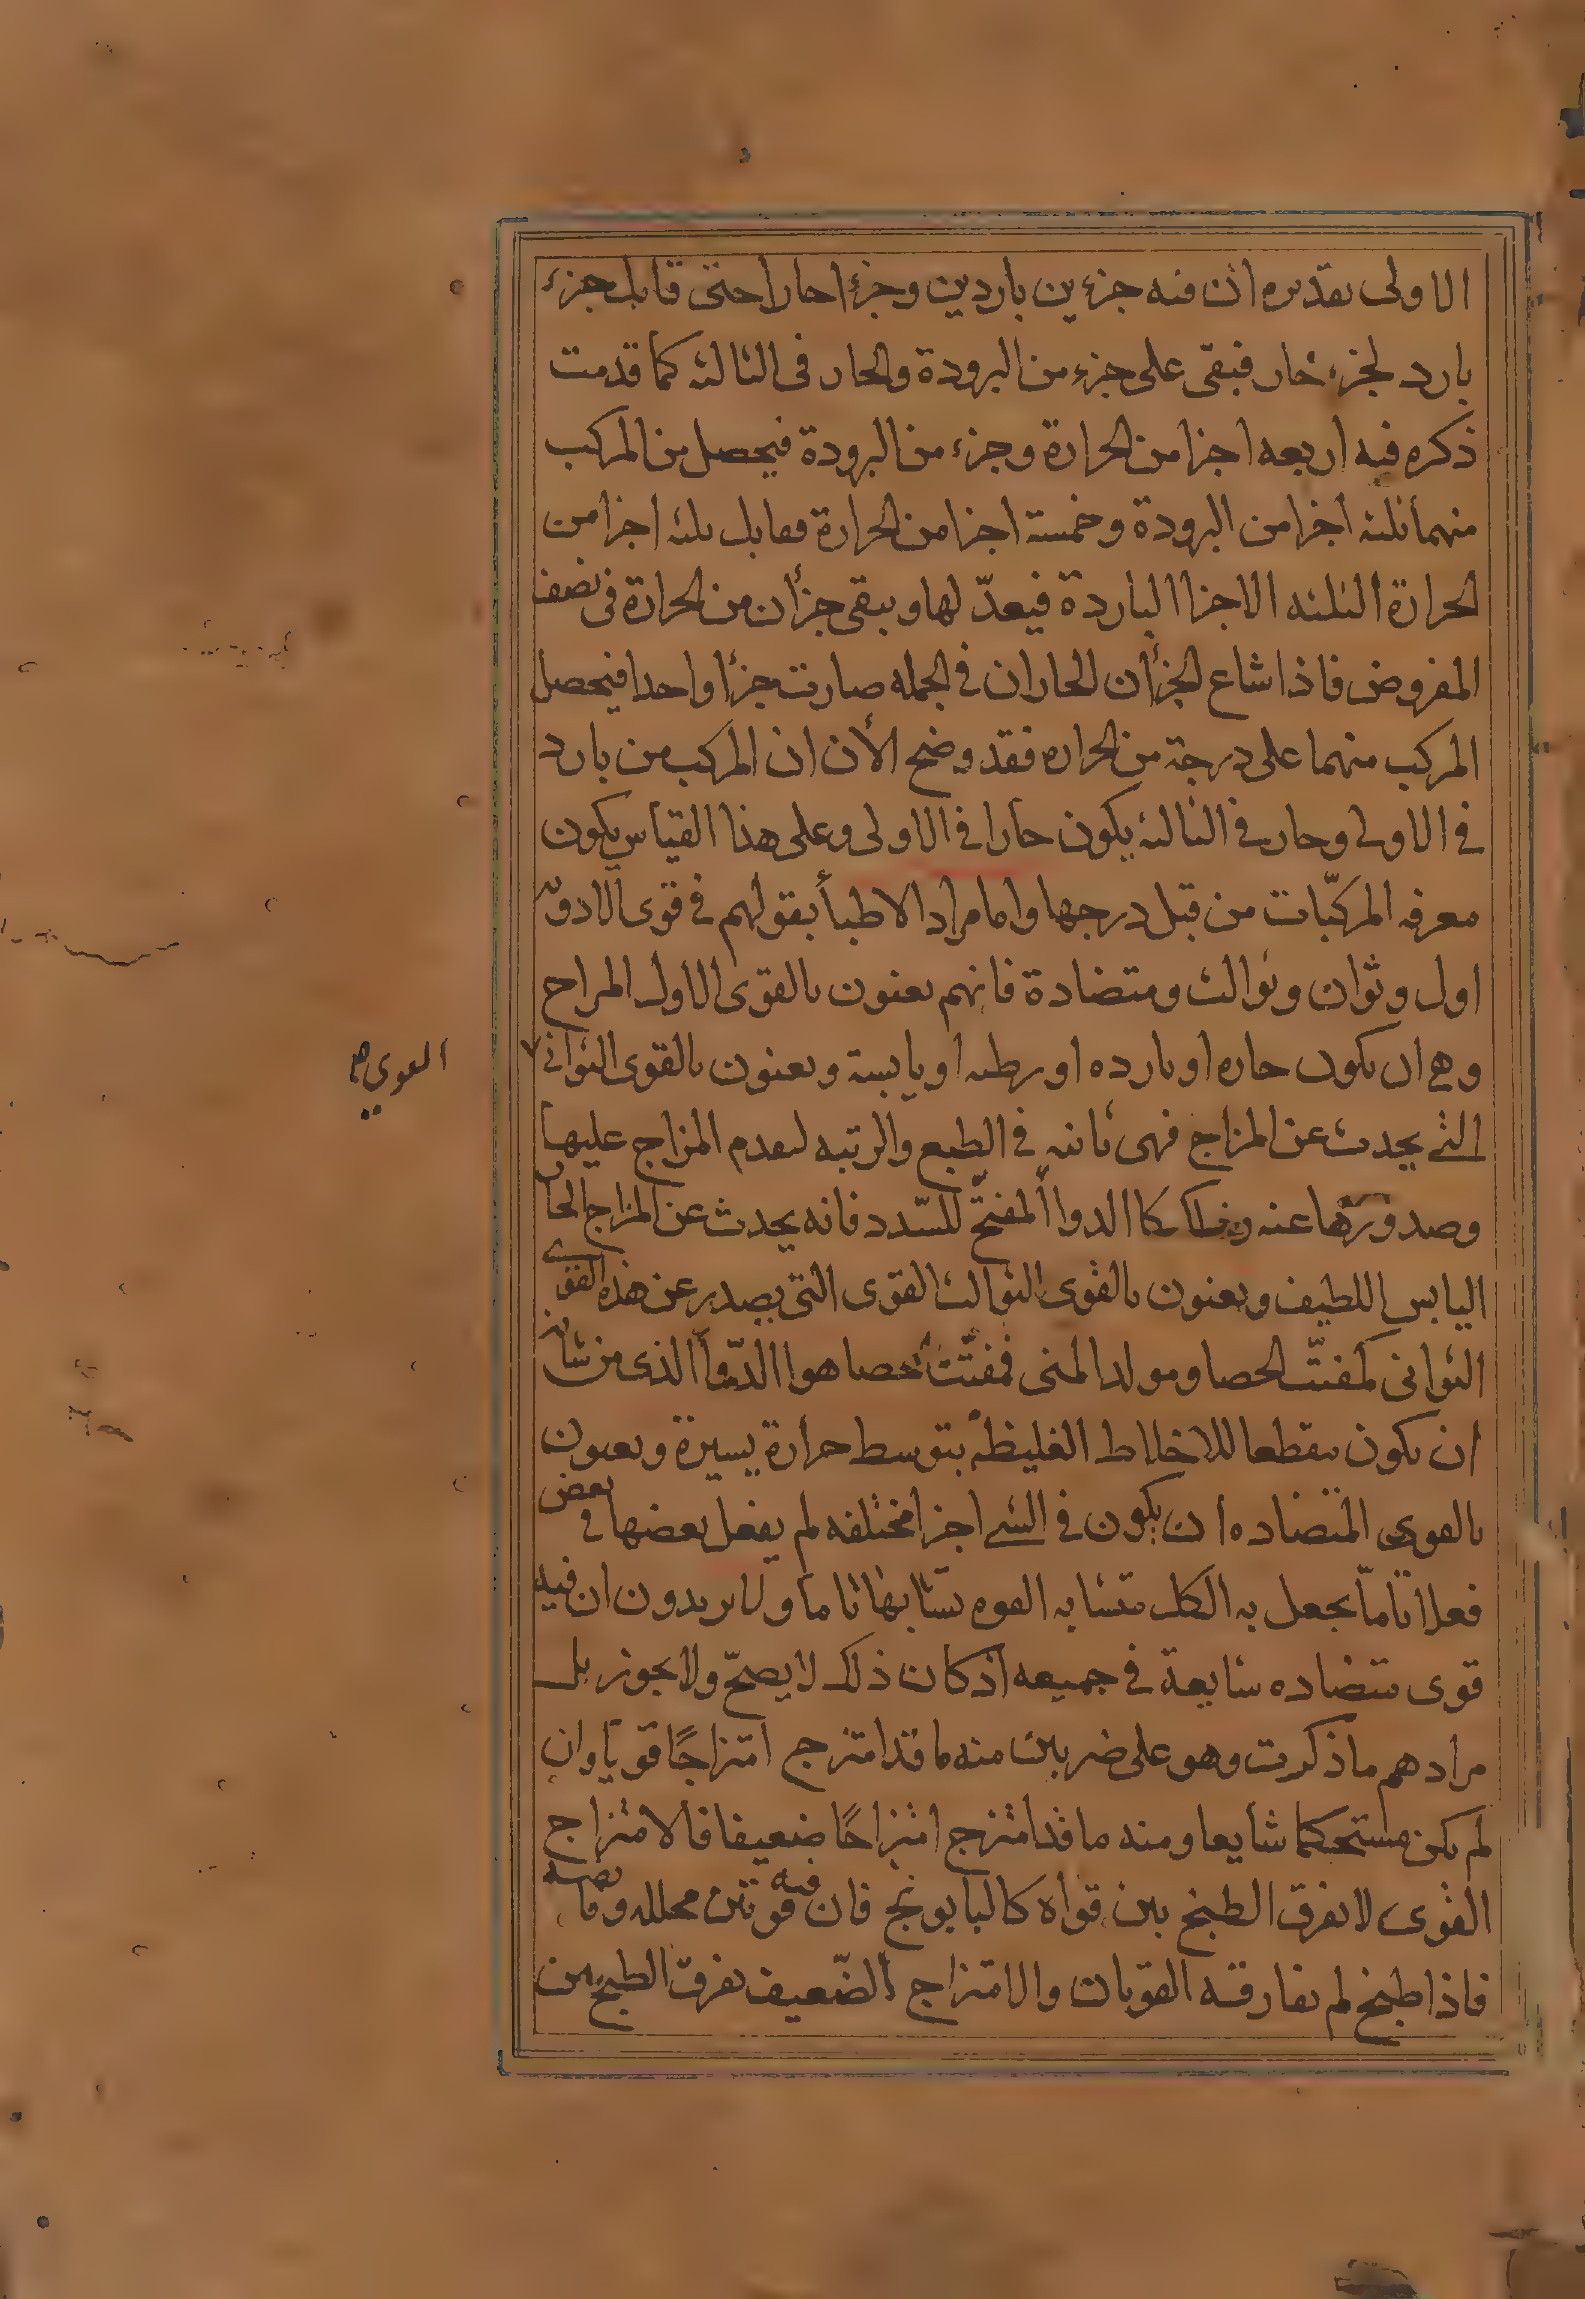 الاولى بقدىره ان فيه جزءين باردين وجزءا حارا حتى قابل جزء
بارد لجزء حار فبقى على جزء من البرودة والحار فى الثالثه كما قدمت
ذكره فيه اربعه اجزا من الحرارة وجزء من البرودة فيحصل من المركب
منهما ثلثه اجزا من البرودة وخمسة اجزا من الحرارة فقابل ثلثه اجزا من
الحرارة الثلثه الاجزا الباردة فيعدّ لها ويبقى جزأن من الحرارة فى نصف
المفروض فاذا شاع الجزأن الحاران فى الجمله صارت جزأ واحدا فيحصل
المركب منهما على درجة من الحراره فقد وضح الأن ان المركب من بارد
فى الاولى وحار فى الثالثه يكون حارا فى الاولى وعلى هذا القياس يكون
معرفه المركبّات من قبل درجها واما مراد الاطبأ بقولهم فى قوى الادويه
اول وثوان وثوالث ومتضادة فانهم يعنون بالقوى الاول المزاج
وهى ان يكون حاره او بارده او رطبه او يابسة ويعنون بالقوى الثوانى
القوى
التى يحدث عن المزاج فهى ثانيه فى الطبع والرتبه لتقدم المزاج عليها
وصدورها عنه وذلك كاالدواا المفتّح للسّدد فانه يحدث عن المزاج الحار
اليابس اللطيف ويعنون بالقوى الثوالث القوى التى يصدر عن هذه القوى
الثوانى كمفتّت الحصا ومولد المنى فمفتّت الحصا هوا الدّوأ الذى من شانه
ان يكون مقطعا للاخلاط الغليظه بتوسط حرارة يسيرة ويعنون
بالقوى المتضاده ان يكون فى الشى اجزا مختلفه لم يفعل بعضها فى بعض
فعلا تاماً يجعل به الكل متشابه القوه تشابها تاما ولا يريدون ان فيه
قوى متضاده شايعة فى جميعه اذ كان ذلك لا يصحّ ولا يجوز بل
مرادهم ما ذكرت وهو على ضربين منه ما قد امتزج امتزاجًا قويا وان
لم يكن مستحكما شايعا ومنه ما قد امتزج امتزاجًا ضعيفا فالامتزاج
القوى لا يفرق الطبخ بين قواه كالبابونج فان فيه قوتين محلله وقابضه
فاذا طبخ لم يفارقه القوتان والامتزاج الضّعيف يفرق الطبخ بين